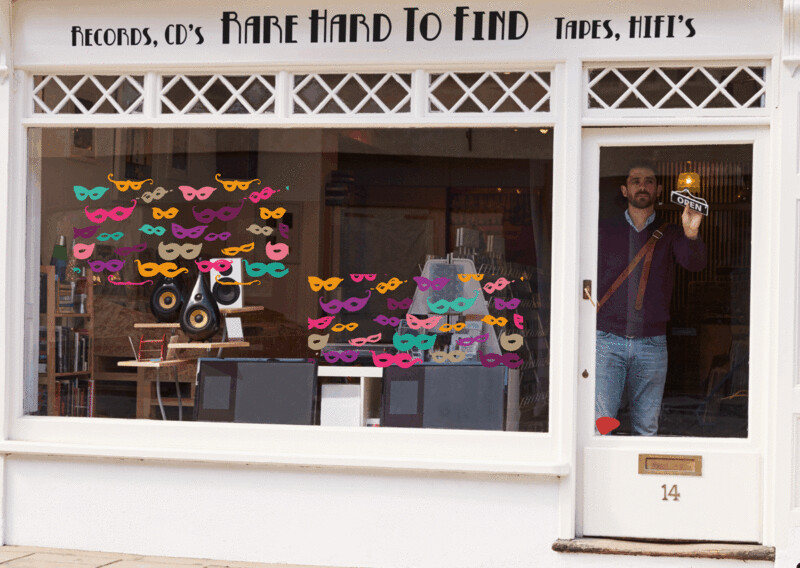 RECORDS, CD'S RARE HARD TO FIND TAPES, HIFI'S
OPEN
14